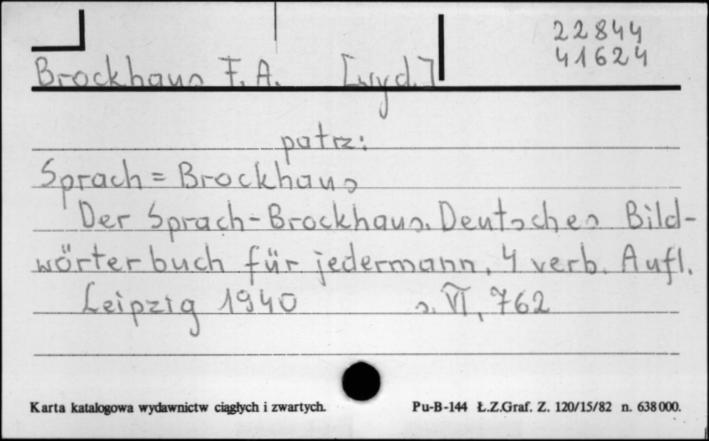 22844
41624
Brockhaus F. A. [wyd.]
patrz:
Sprach = Brockhaus
Der Sprach-Brockhaus. Deutsches Bild-
wörterbuch für jedermann. 4 verb. Aufl.
Leipzig 1940 s. VI, 762
Karta katalogowa wydawnictw ciągłych i zwartych. Pu-B-144 Ł.Z.Graf. Z. 120/15/82 n. 638000.